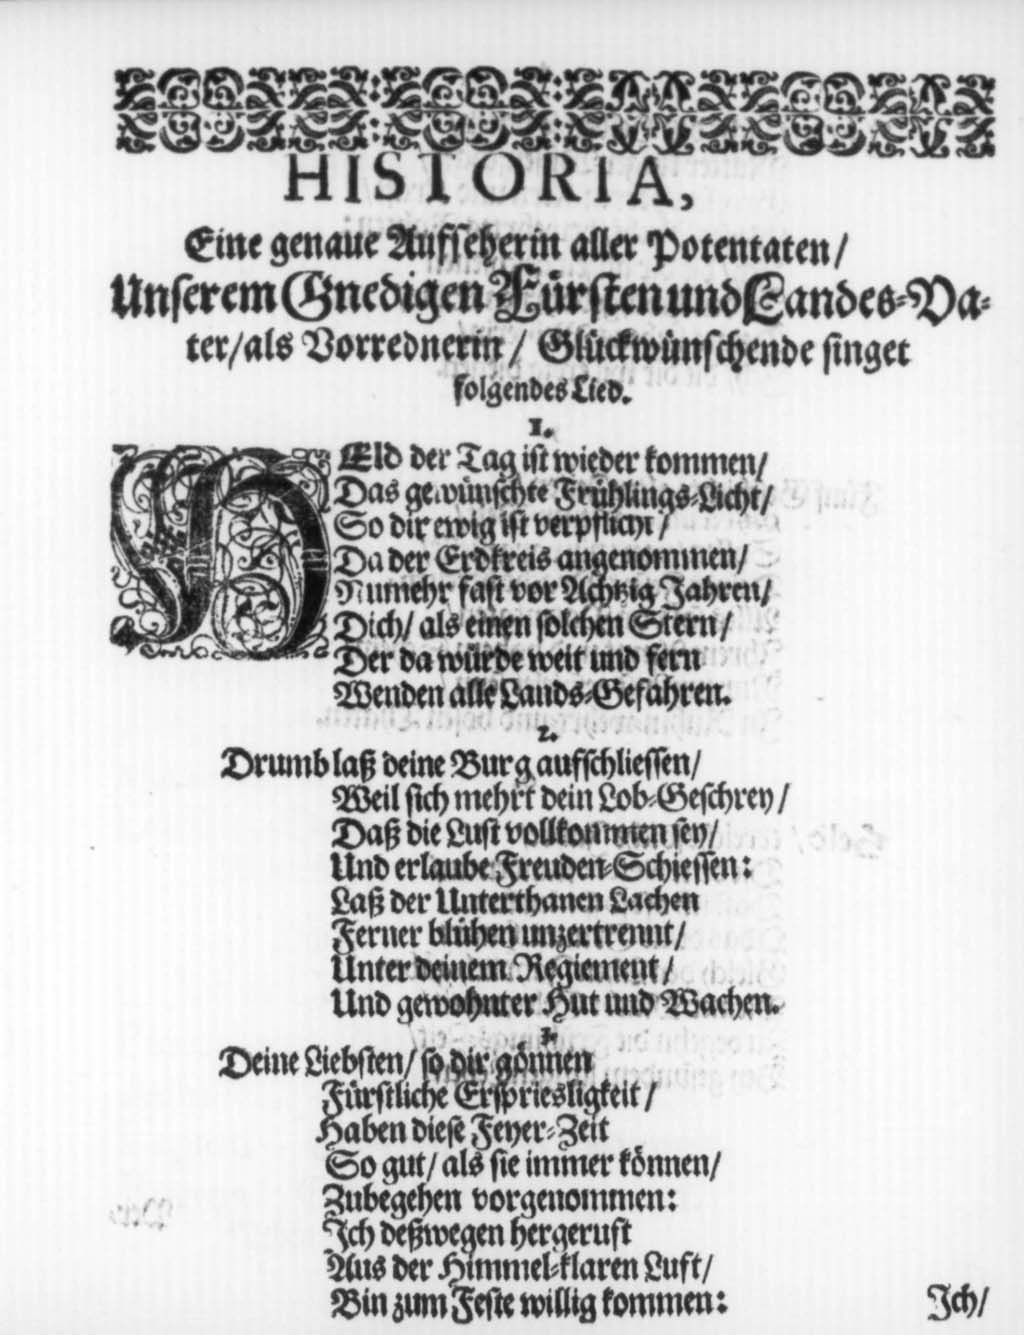 HISTORIA,
Eine genaue Auffseherin aller Potentaten/
Unserem Gnedigen Fürsten und Landes-Va-
ter/als Vorrednerin/ Glückwünschende singet
folgendes Lied.
1.
HEld der Tag ist wieder kommen/
Das gewünschte Frühlings-Licht/
So dir ewig ist verpflicht/
Da der Erdkreis angenommen/
Numehr fast vor Achtzig Jahren/
Dich/ als einen solchen Stern/
Der da würde weit und fern
Wenden alle Lands-Gefahren.
2.
Drumb laß deine Burg auffschliessen/
Weil sich mehrt dein Lob-Geschrey/
Daß die Lust vollkommen sey/
Und erlaube Freuden-Schiessen:
Laß der Unterthanen Lachen
Ferner blühen unzertrennt/
Unter deinem Regiement/
Und gewohnter Hut und Wachen.
3.
Deine Liebsten/ so dir gönnen
Fürstliche Erspriesligkeit/
Haben diese Feyer-Zeit
So gut/ als sie immer können/
Zubegehen vorgenommen:
Ich deßwegen hergerufft
Aus der Himmel-klaren Lufft/
Bin zum Feste willig kommen:
Ich/